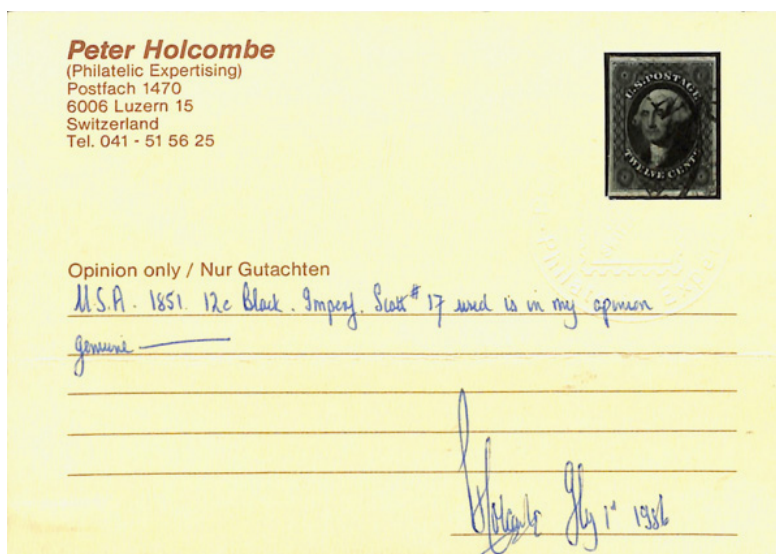 Peter Holcombe
(Philatelic Expertising)
Postfach 1470
6006 Luzern 15
Switzerland
Tel. 041 - 51 56 25
U.S. POSTAGE
TWELVE CENTS
Opinion only / Nur Gutachten
U.S.A. 1851. 12c Black. Imperf. Scott # 17 used is in my opinion
genuine
Holcombe 1st 1986